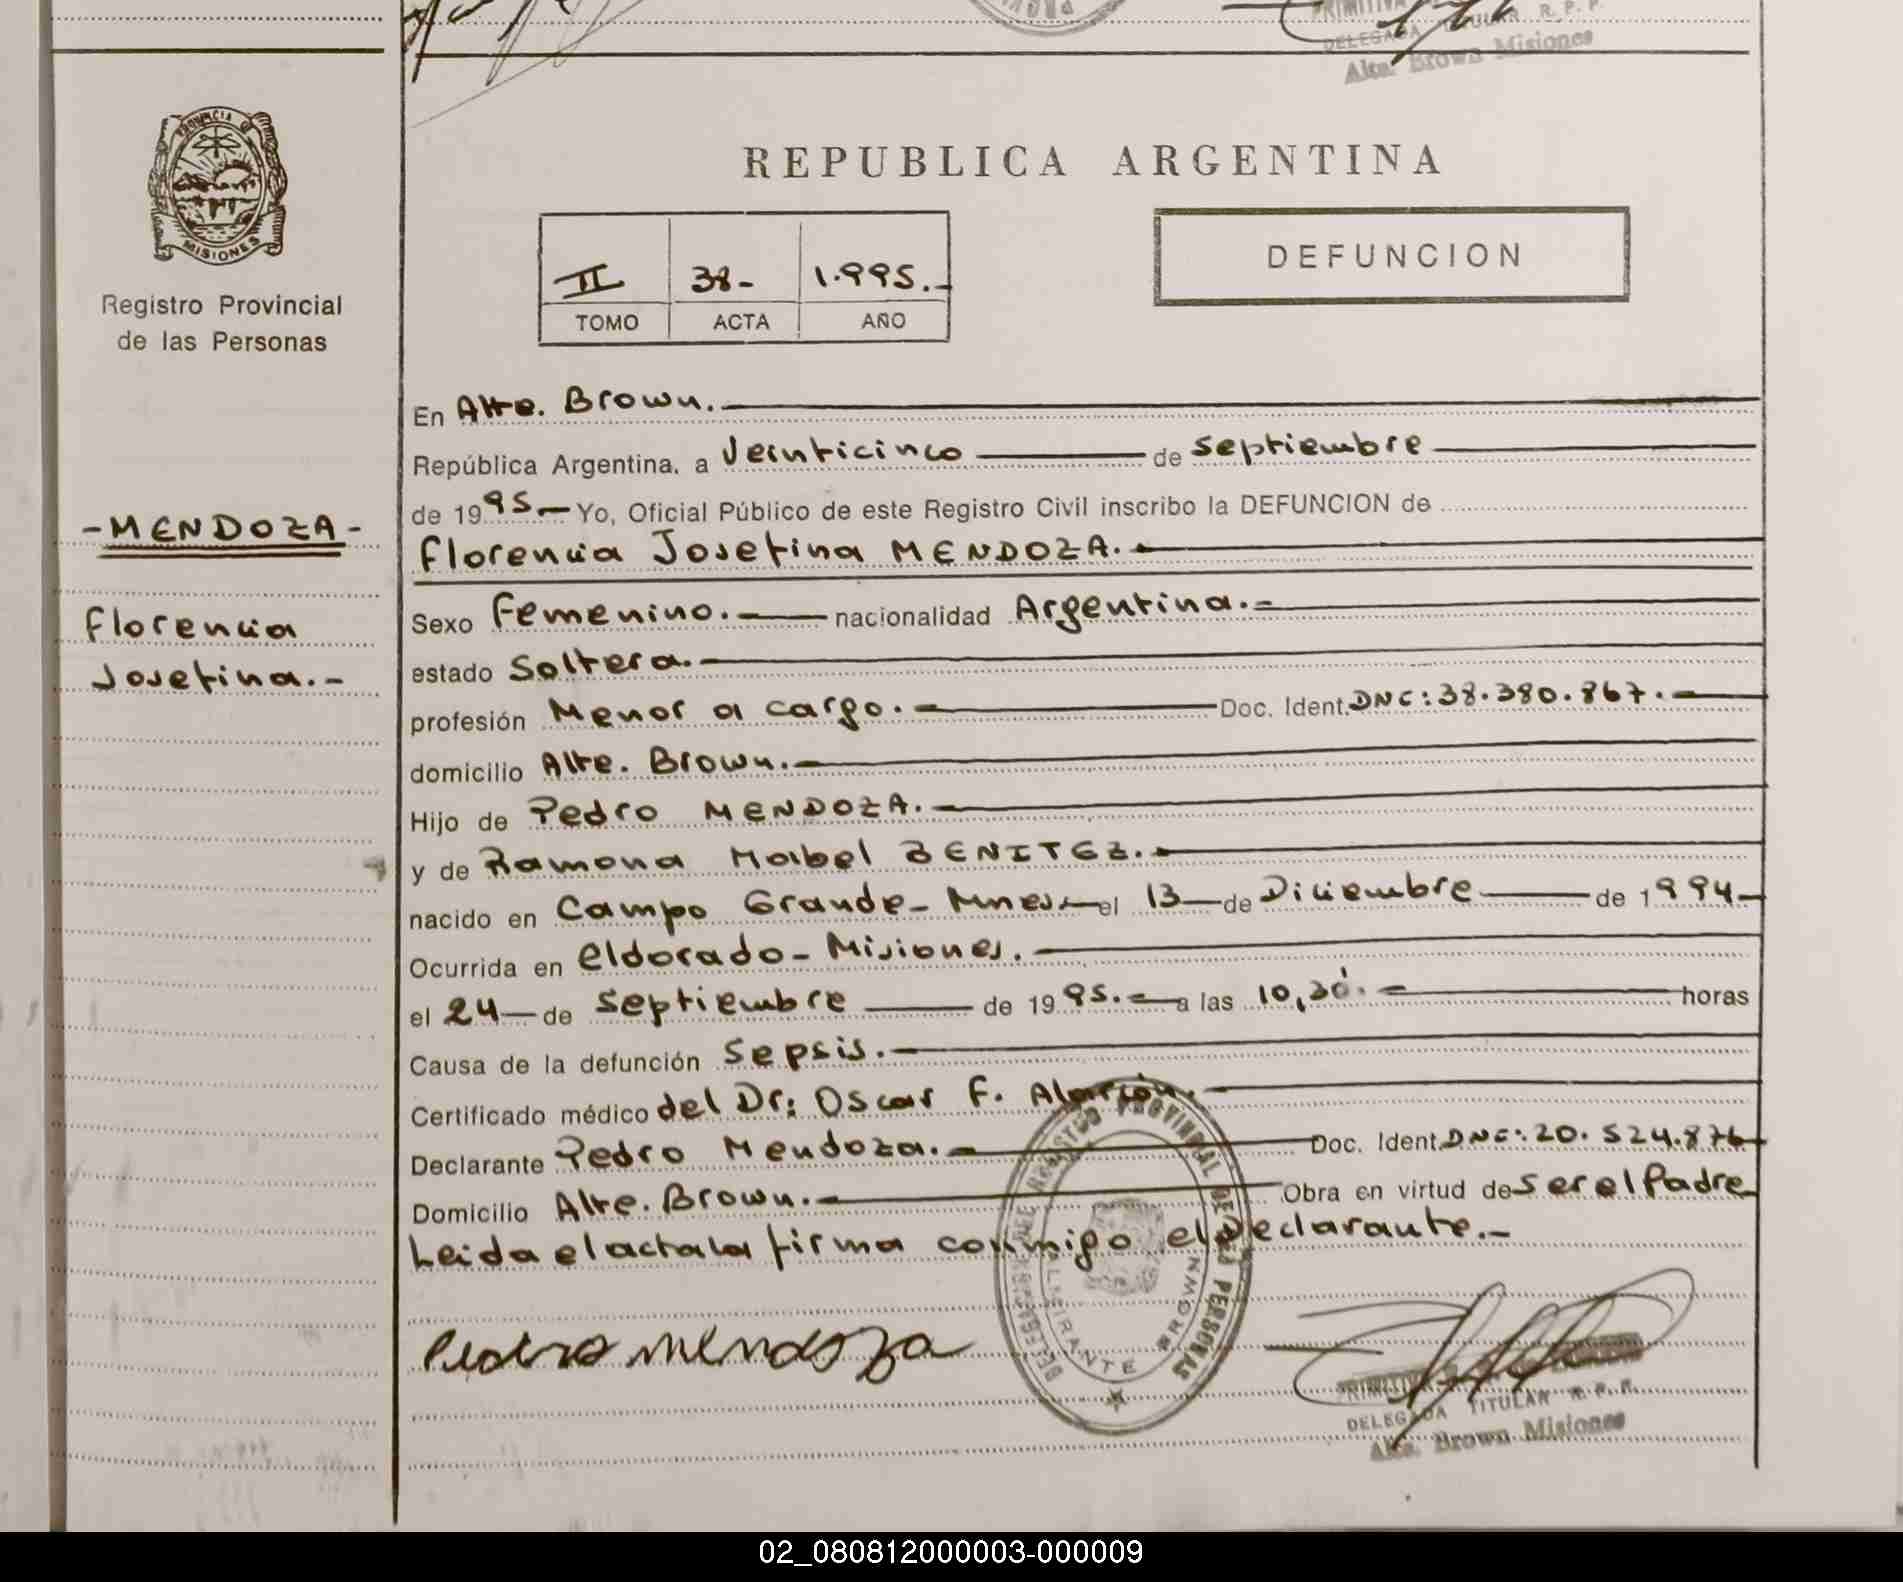 DELEGADA TITULAR R. P. P.
Alte. Brown Misiones
PROVINCIA DE
MISIONES
Registro Provincial
de las Personas
-MENDOZA-
Florencia
Josefina.-
REPUBLICA ARGENTINA
II 38- 1.995.-
TOMO ACTA AÑO
DEFUNCION
En Alte. Brown.
República Argentina, a Veinticinco de Septiembre
de 1995.- Yo, Oficial Público de este Registro Civil inscribo la DEFUNCION de
Florencia Josefina MENDOZA.-
Sexo Femenino.- nacionalidad Argentina.-
estado Soltera.-
profesión Menor a cargo.- Doc. Ident. DNC: 38.380.867.-
domicilio Alte. Brown.-
Hijo de Pedro MENDOZA.-
y de Ramona Mabel BENITEZ.-
nacido en Campo Grande- Mnes.- el 13 de Diciembre de 1994-
Ocurrida en eldorado- Misiones.-
el 24 de Septiembre de 1995.- a las 10,30'.- horas
Causa de la defunción Sepsis.-
Certificado médico del Dr: Oscar F. Alarcón.-
Declarante Pedro Mendoza.- Doc. Ident. DNC: 20.524.876
Domicilio Alte. Brown.- Obra en virtud de Ser el Padre
Leida el acta la firma conmigo el Declarante.-
Pedro Mendoza
DELEGACION DEL REGISTRO PROVINCIAL DE LAS PERSONAS
ALMIRANTE BROWN
DELEGADA TITULAR R. P. P.
Alte. Brown Misiones
02_080812000003-000009